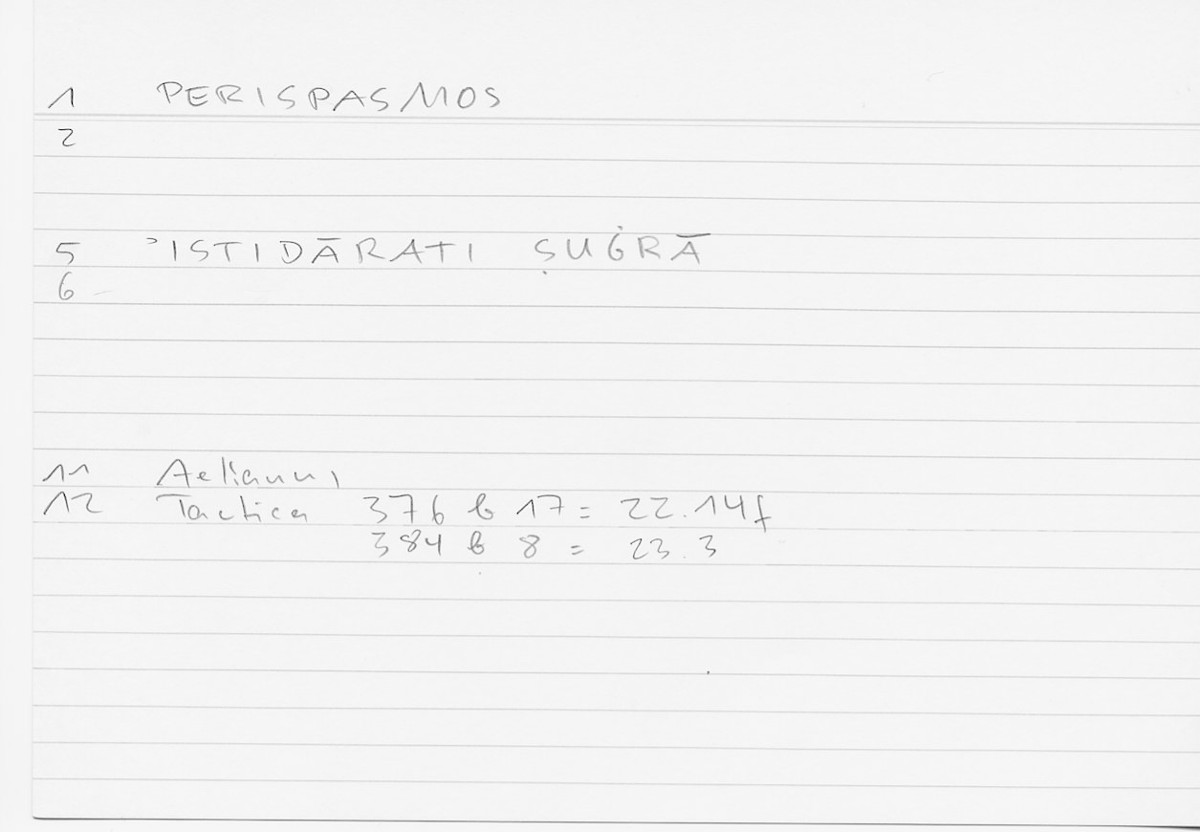 1 PERISPASMOS
2
5 ʾISTIDĀRATI ṢUĠRĀ
6
11 Aelianus
12 Tactica 376 b 17 = 22.14f
384 b 8 = 23.3